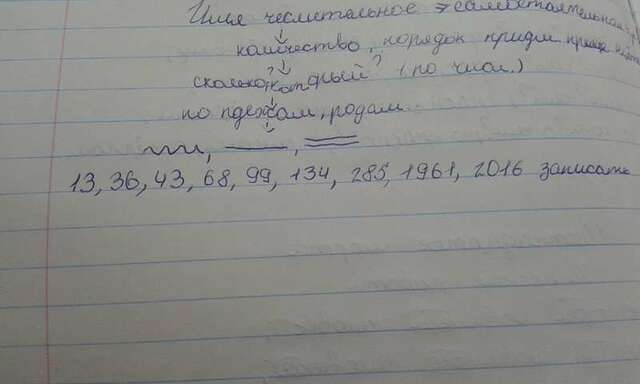 Имя числительное → самостоятельная
количество, порядок
сколько? который? (по числ.)
по падежам, родам
13, 36, 43, 68, 99, 134, 285, 1961, 2016 записать